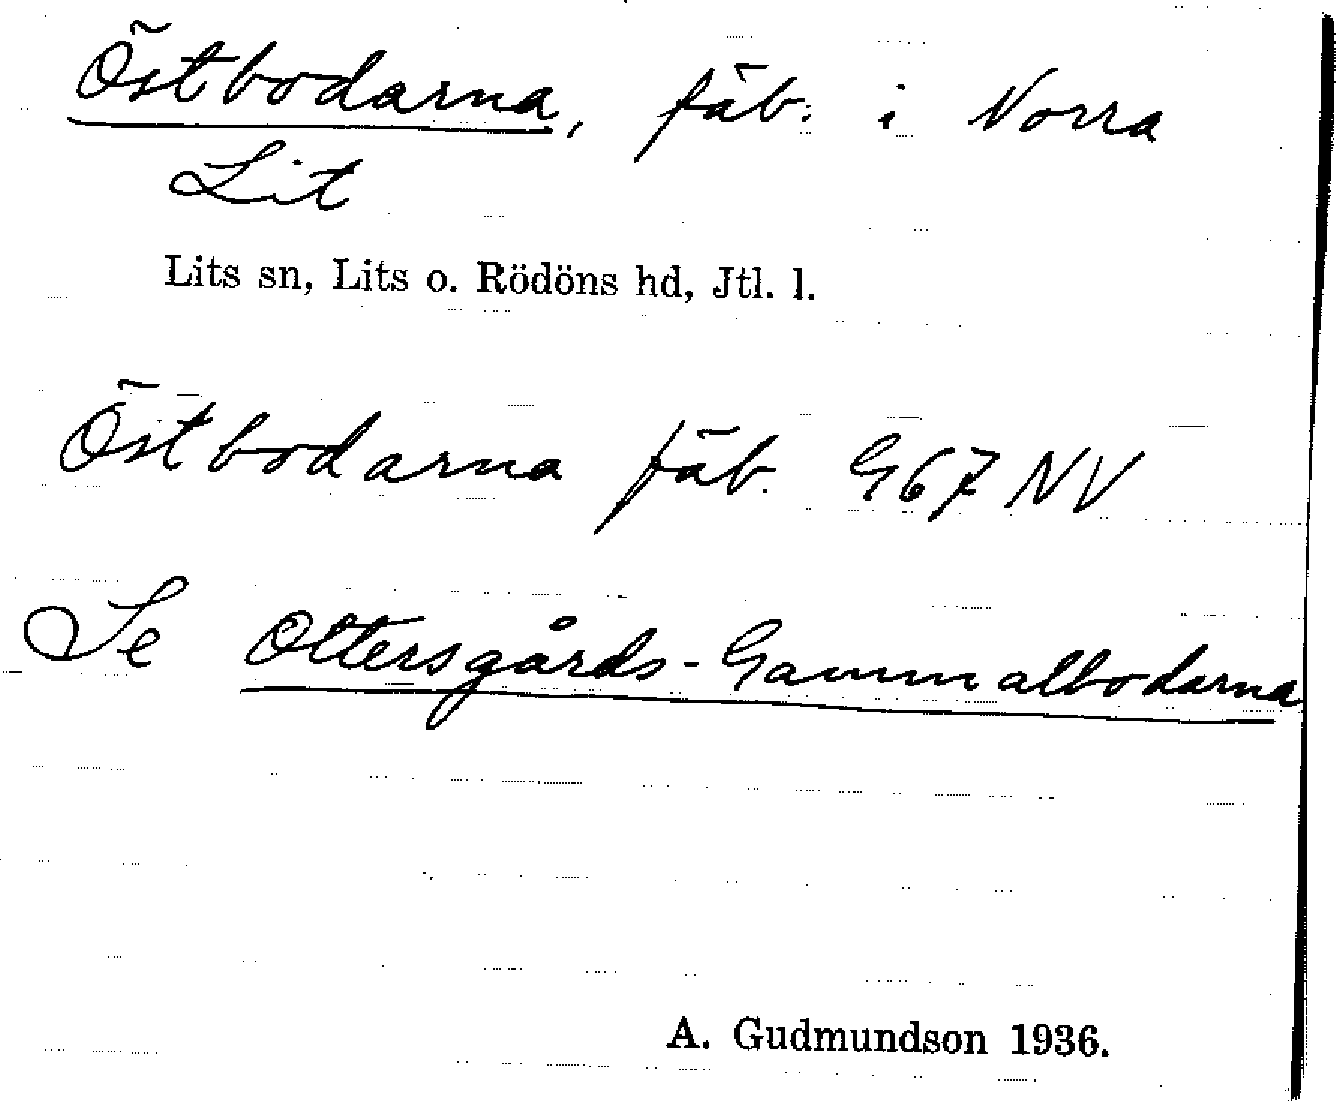 Östbodarna, fäb. i Norra
Lit
Lits sn, Lits o. Rödöns hd, Jtl. l.
Östbodarna fäb. G67 NV
Se Ottersgårds-Gammalbodarna
A. Gudmundson 1936.